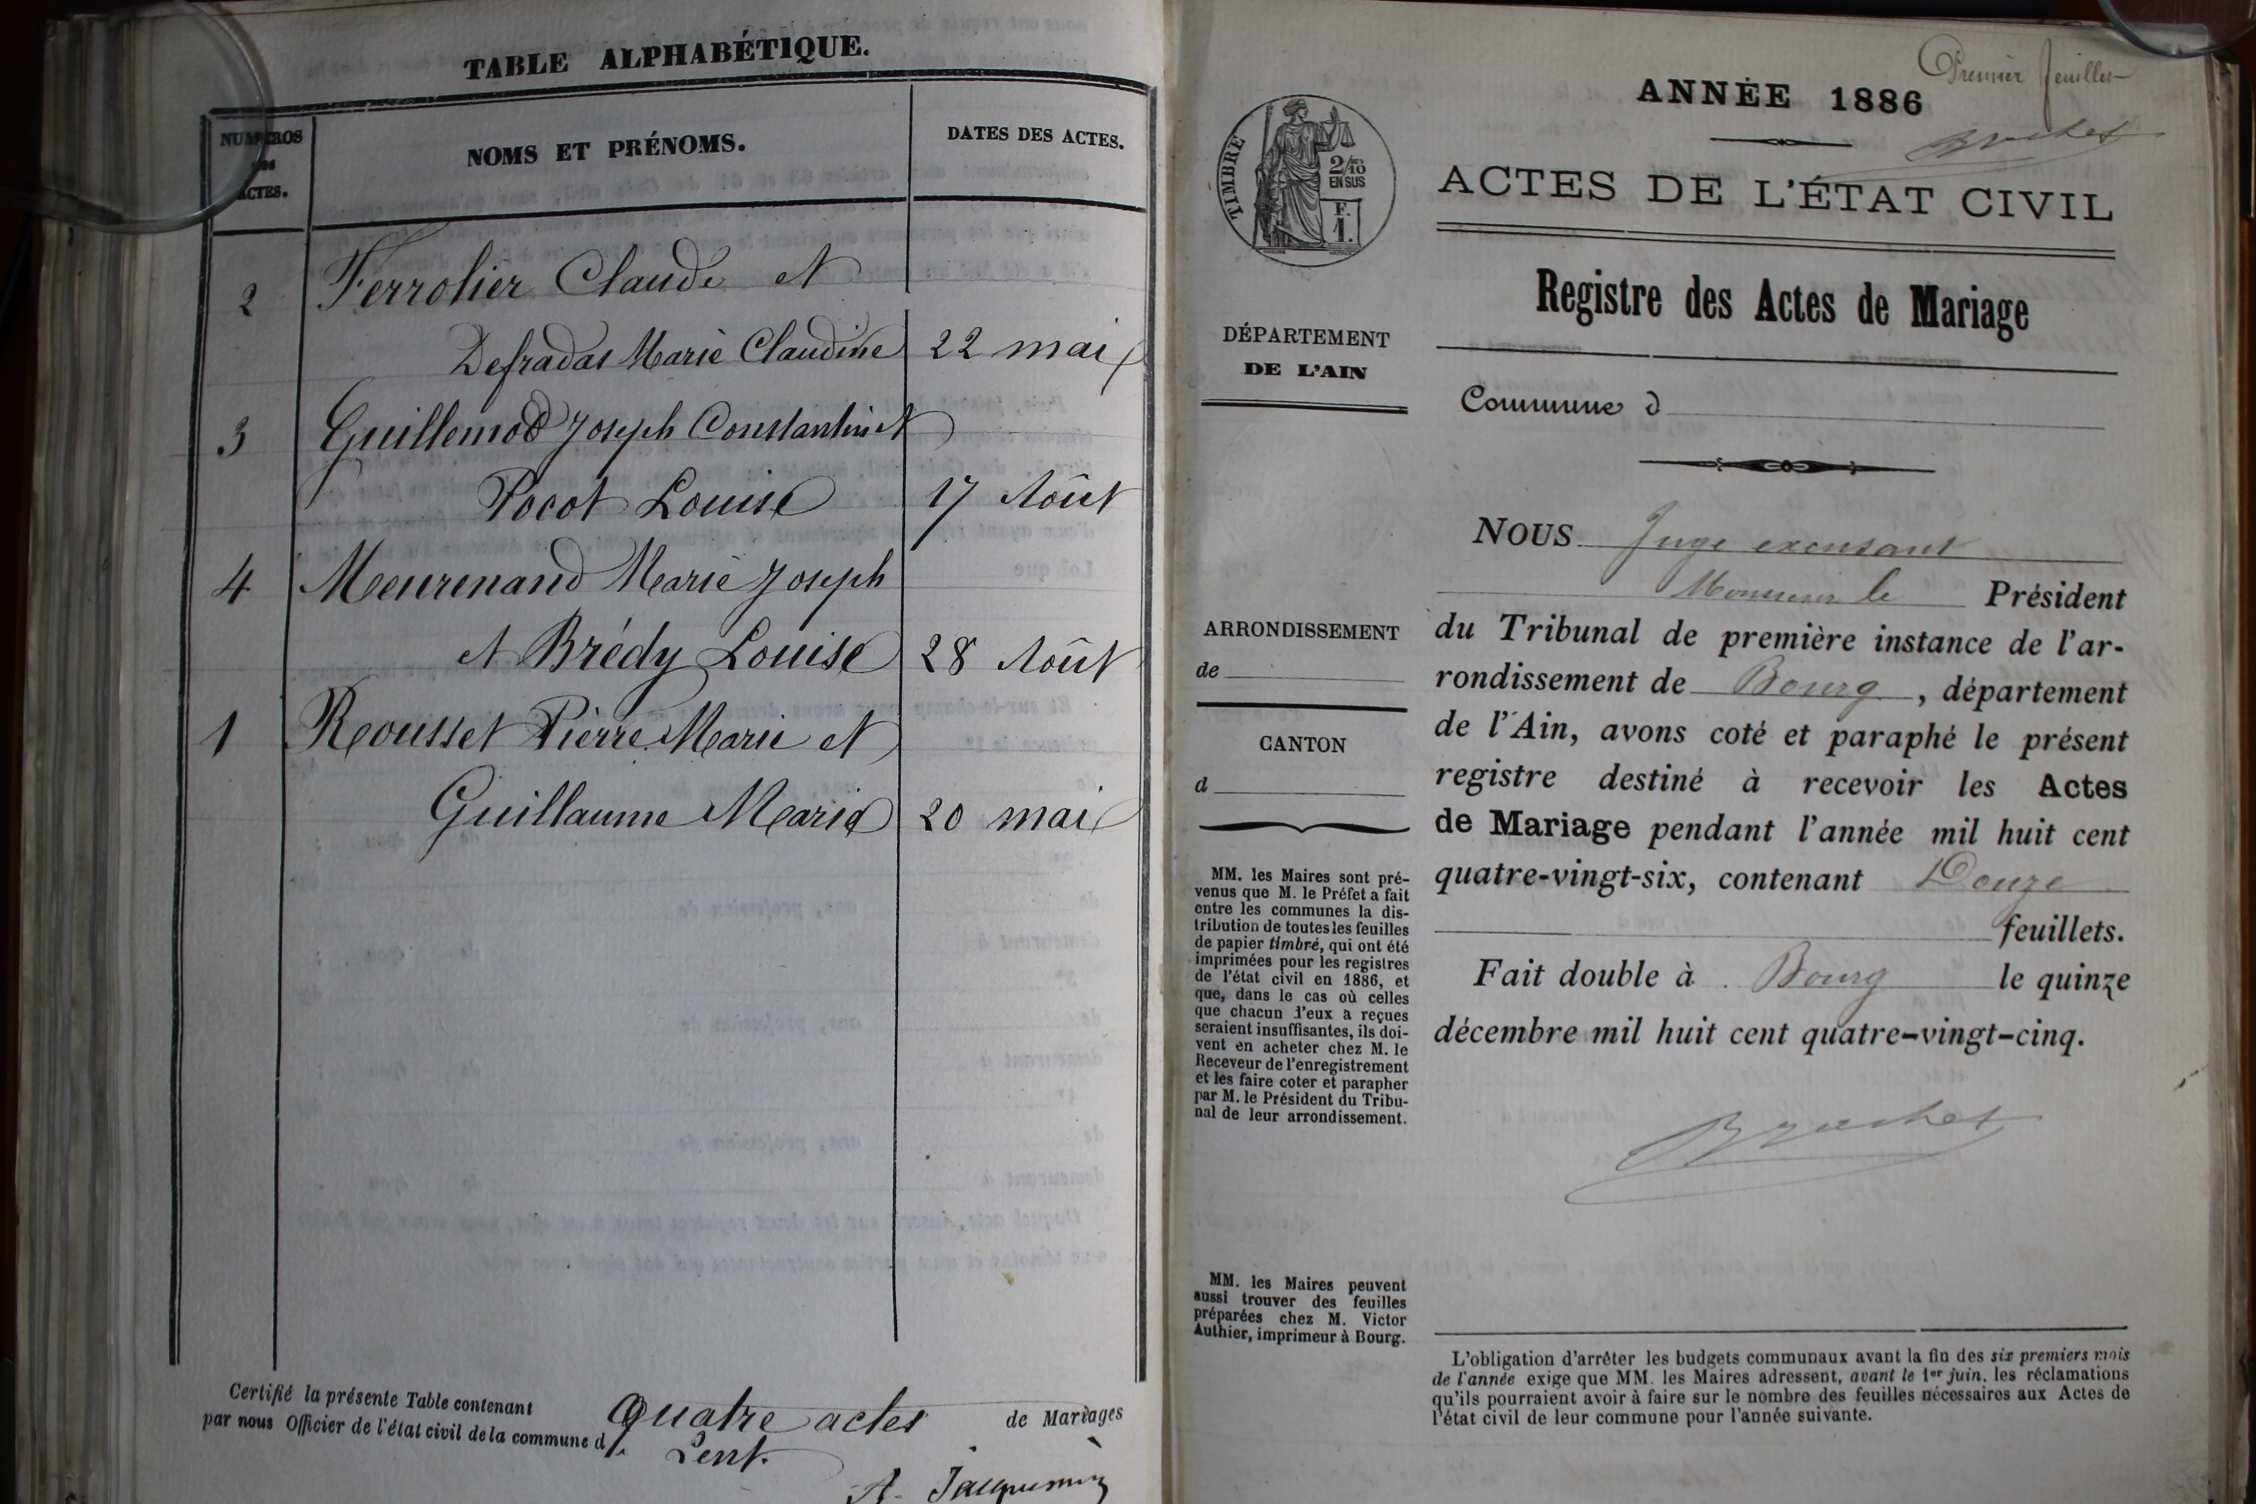 TABLE ALPHABÉTIQUE.
NUMÉROS
DES
ACTES.
NOMS ET PRÉNOMS.
DATES DES ACTES.
2 Ferrolier Claude et
Defradas Marie Claudine 22 mai
3 Guillemod Joseph Constantin et
Pocot Louise 17 Août
4 Meurenand Marie Joseph
et Brédy Louise 28 Août
1 Rousset Pierre Marie et
Guillaume Marie 20 mai
Certifié la présente Table contenant quatre actes de Mariages
par nous Officier de l'état civil de la commune d Lent.
A. Jacquemin
Premier feuillet
Brachet
ANNÉE 1886
ACTES DE L'ÉTAT CIVIL
Registre des Actes de Mariage
Commune d
TIMBRE
2/10
EN SUS
F.
1.
DÉPARTEMENT
DE L'AIN
ARRONDISSEMENT
de
CANTON
d
MM. les Maires sont pré-
venus que M. le Préfet a fait
entre les communes la dis-
tribution de toutes les feuilles
de papier timbré, qui ont été
imprimées pour les registres
de l'état civil en 1886, et
que, dans le cas où celles
que chacun d'eux a reçues
seraient insuffisantes, ils doi-
vent en acheter chez M. le
Receveur de l'enregistrement
et les faire coter et parapher
par M. le Président du Tribu-
nal de leur arrondissement.
MM. les Maires peuvent
aussi trouver des feuilles
préparées chez M. Victor
Authier, imprimeur à Bourg.
NOUS Juge excusant
Monsieur le Président
du Tribunal de première instance de l'ar-
rondissement de Bourg, département
de l'Ain, avons coté et paraphé le présent
registre destiné à recevoir les Actes
de Mariage pendant l'année mil huit cent
quatre-vingt-six, contenant Douze
feuillets.
Fait double à Bourg le quinze
décembre mil huit cent quatre-vingt-cinq.
Brachet
L'obligation d'arrêter les budgets communaux avant la fin des six premiers mois
de l'année exige que MM. les Maires adressent, avant le 1er juin, les réclamations
qu'ils pourraient avoir à faire sur le nombre des feuilles nécessaires aux Actes de
l'état civil de leur commune pour l'année suivante.